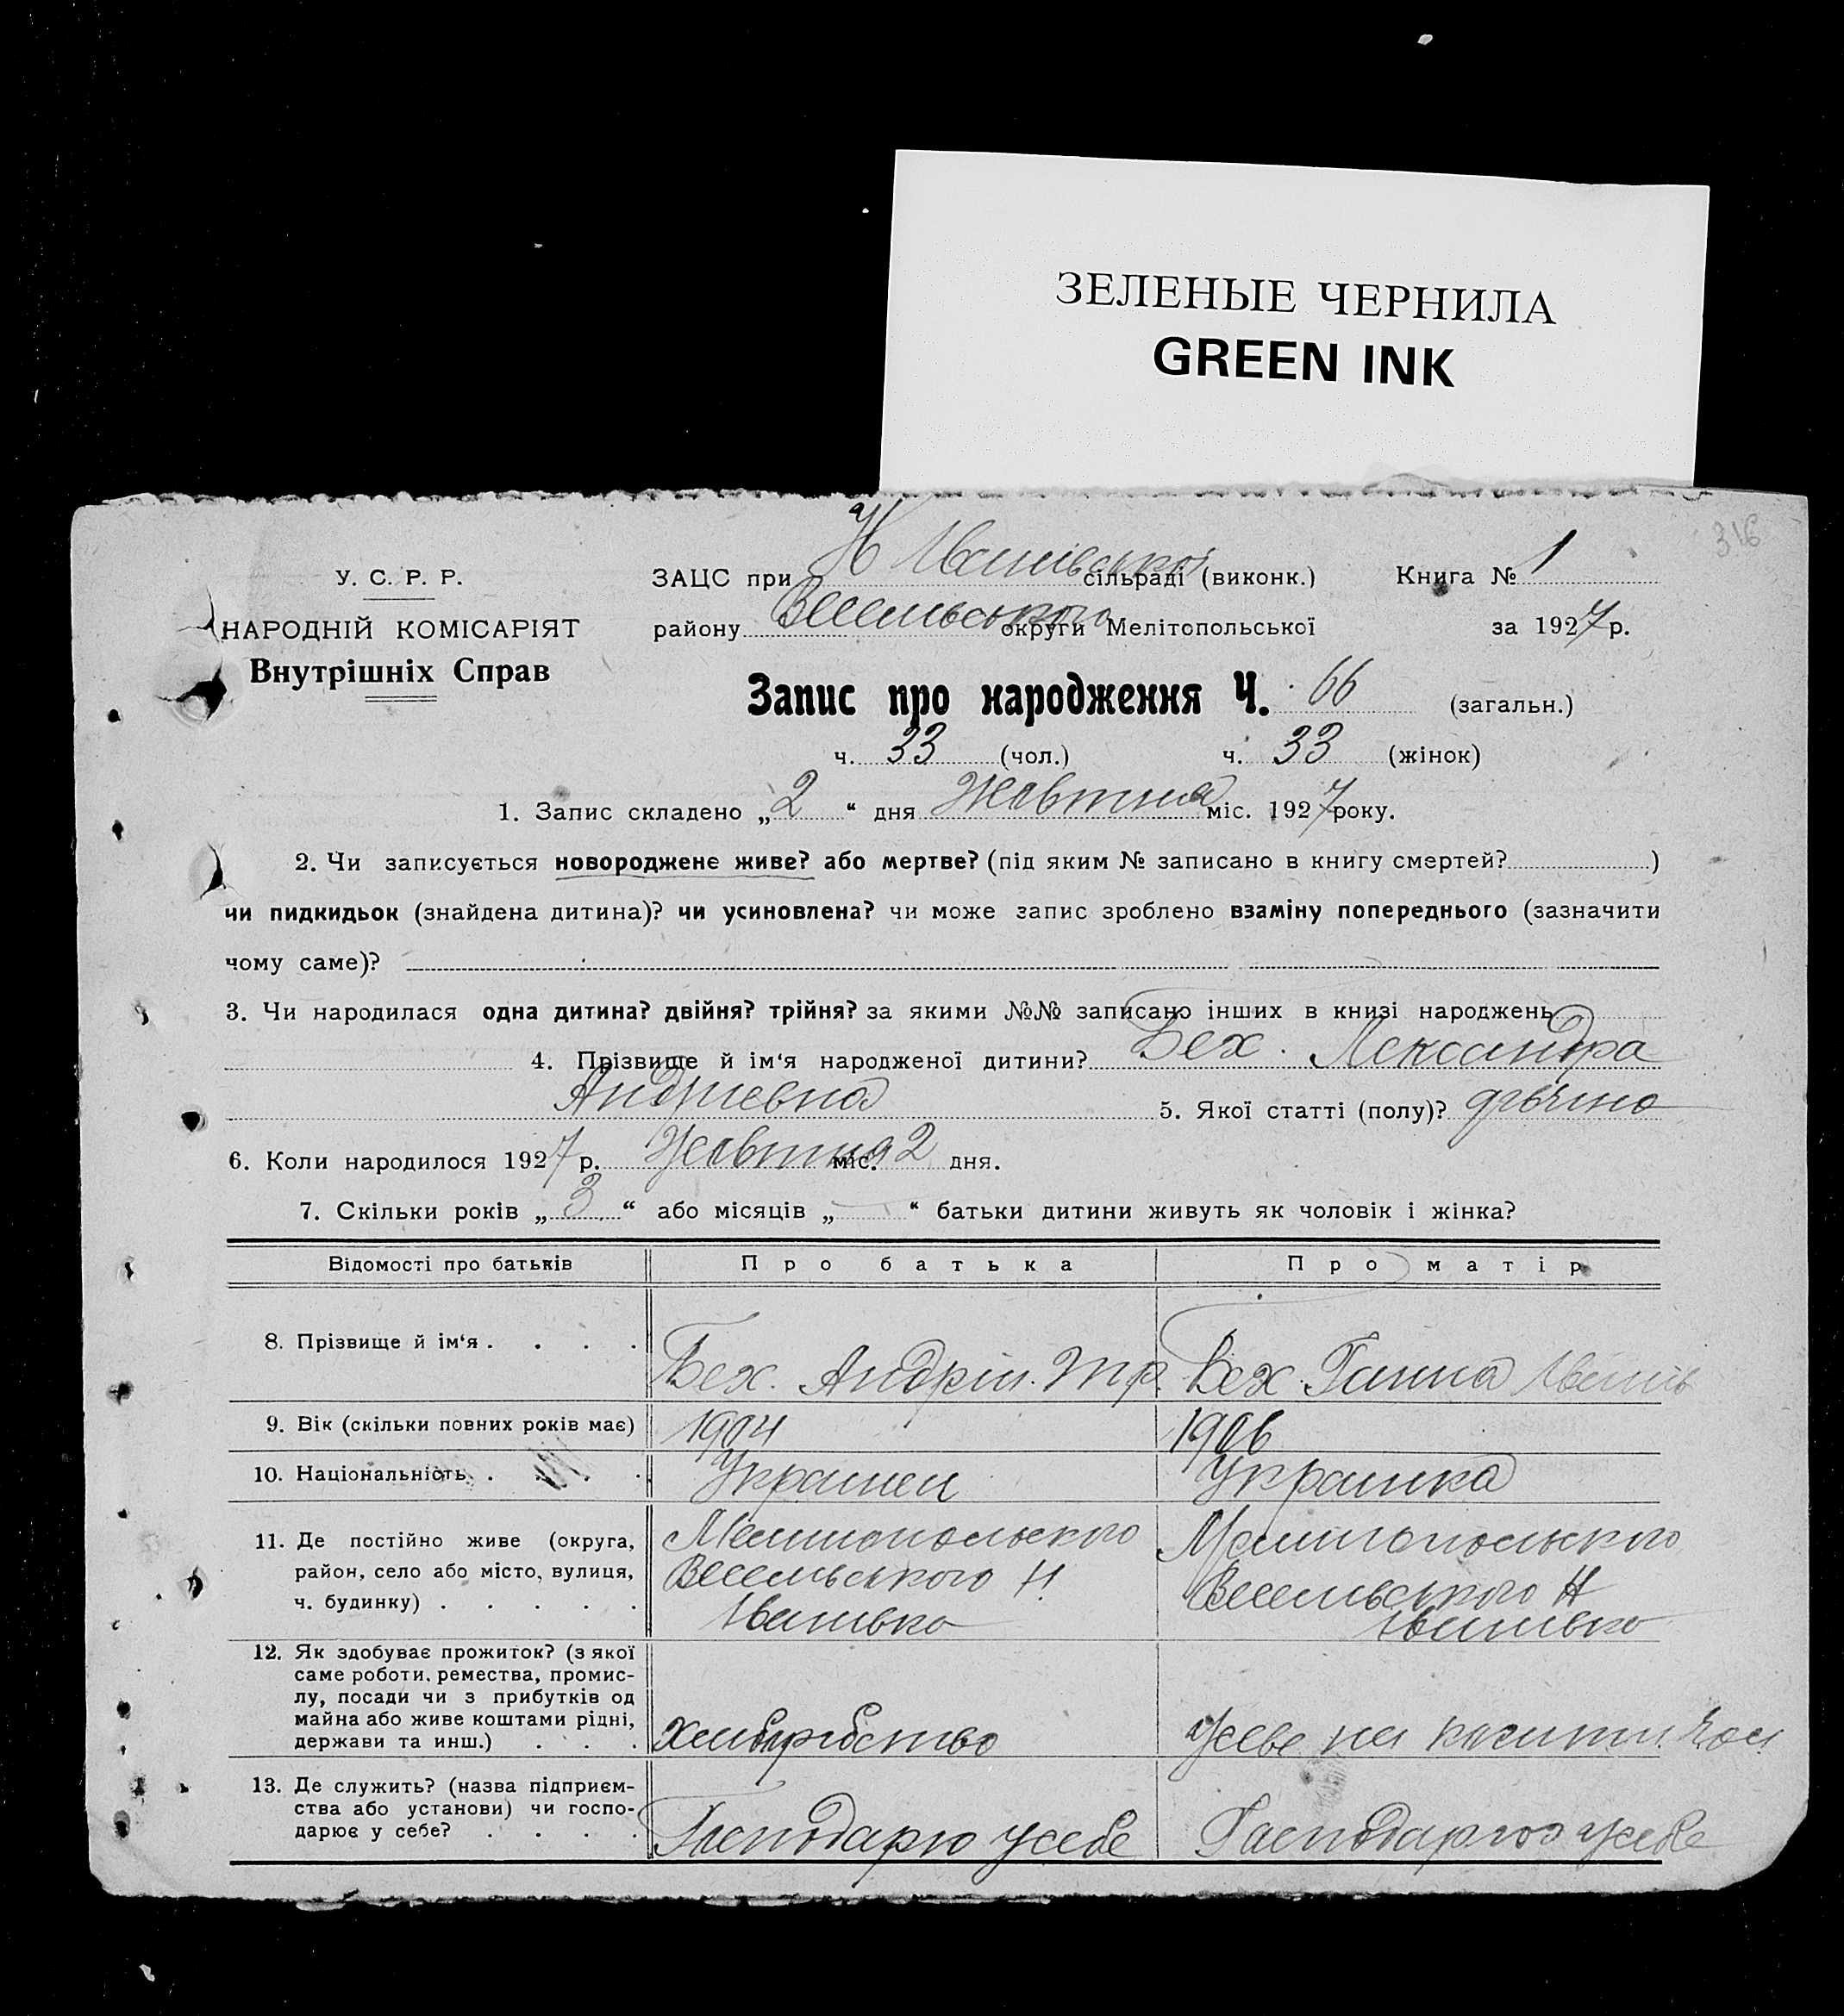 ЗЕЛЕНЫЕ ЧЕРНИЛА
GREEN INK
316
У. С. Р. Р.
НАРОДНІЙ КОМІСАРІЯТ
Внутрішніх Справ
ЗАЦС при Н Іванівської сільраді (виконк.) Книга № 1
району Весельського округи Мелітопольської за 1927 р.
Запис про народження Ч. 66 (загальн.)
ч. 33 (чол.) ч. 33 (жінок)
1. Запис складено „ 2 “ дня Жовтня міс. 1927 року.
2. Чи записується новороджене живе? або мертве? (під яким № записано в книгу смертей? )
чи пидкидьок (знайдена дитина)? чи усиновлена? чи може запис зроблено взаміну попереднього (зазначити
чому саме)?
3. Чи народилася одна дитина? двійня? трійня? за якими №№ записано інших в книзі народжень
4. Прізвище й ім‘я народженої дитини? Бех. Лександра
Андриевна 5. Якої статті (полу)? дівчина
6. Коли народилося 1927 р. Жовтня міс. 2 дня.
7. Скільки років „ 3 “ або місяців „ — “ батьки дитини живуть як чоловік і жінка?
Відомості про батьків Про батька Про матір
8. Прізвище й ім‘я . . . . Бех. Андрій. Тр. Бех. Ганна Іванів
9. Вік (скільки повних років має) 1904 1906
10. Національність . . . . Украинец Украинка
11. Де постійно живе (округа, Мелитопольского Мелитопольского
район, село або місто, вулиця, Весельського Н. Весельського Н
ч. будинку) . . . . . Іванівко Іванівко
12. Як здобуває прожиток? (з якої
саме роботи, ремества, промис-
лу, посади чи з прибутків од
майна або живе коштами рідні,
держави та инш.) . . . Хлиборобство живе на кошти чол
13. Де служить? (назва підприєм-
ства або установи) чи госпо-
дарює у себе? . . . . Господарю усебе Господарюэ усебе